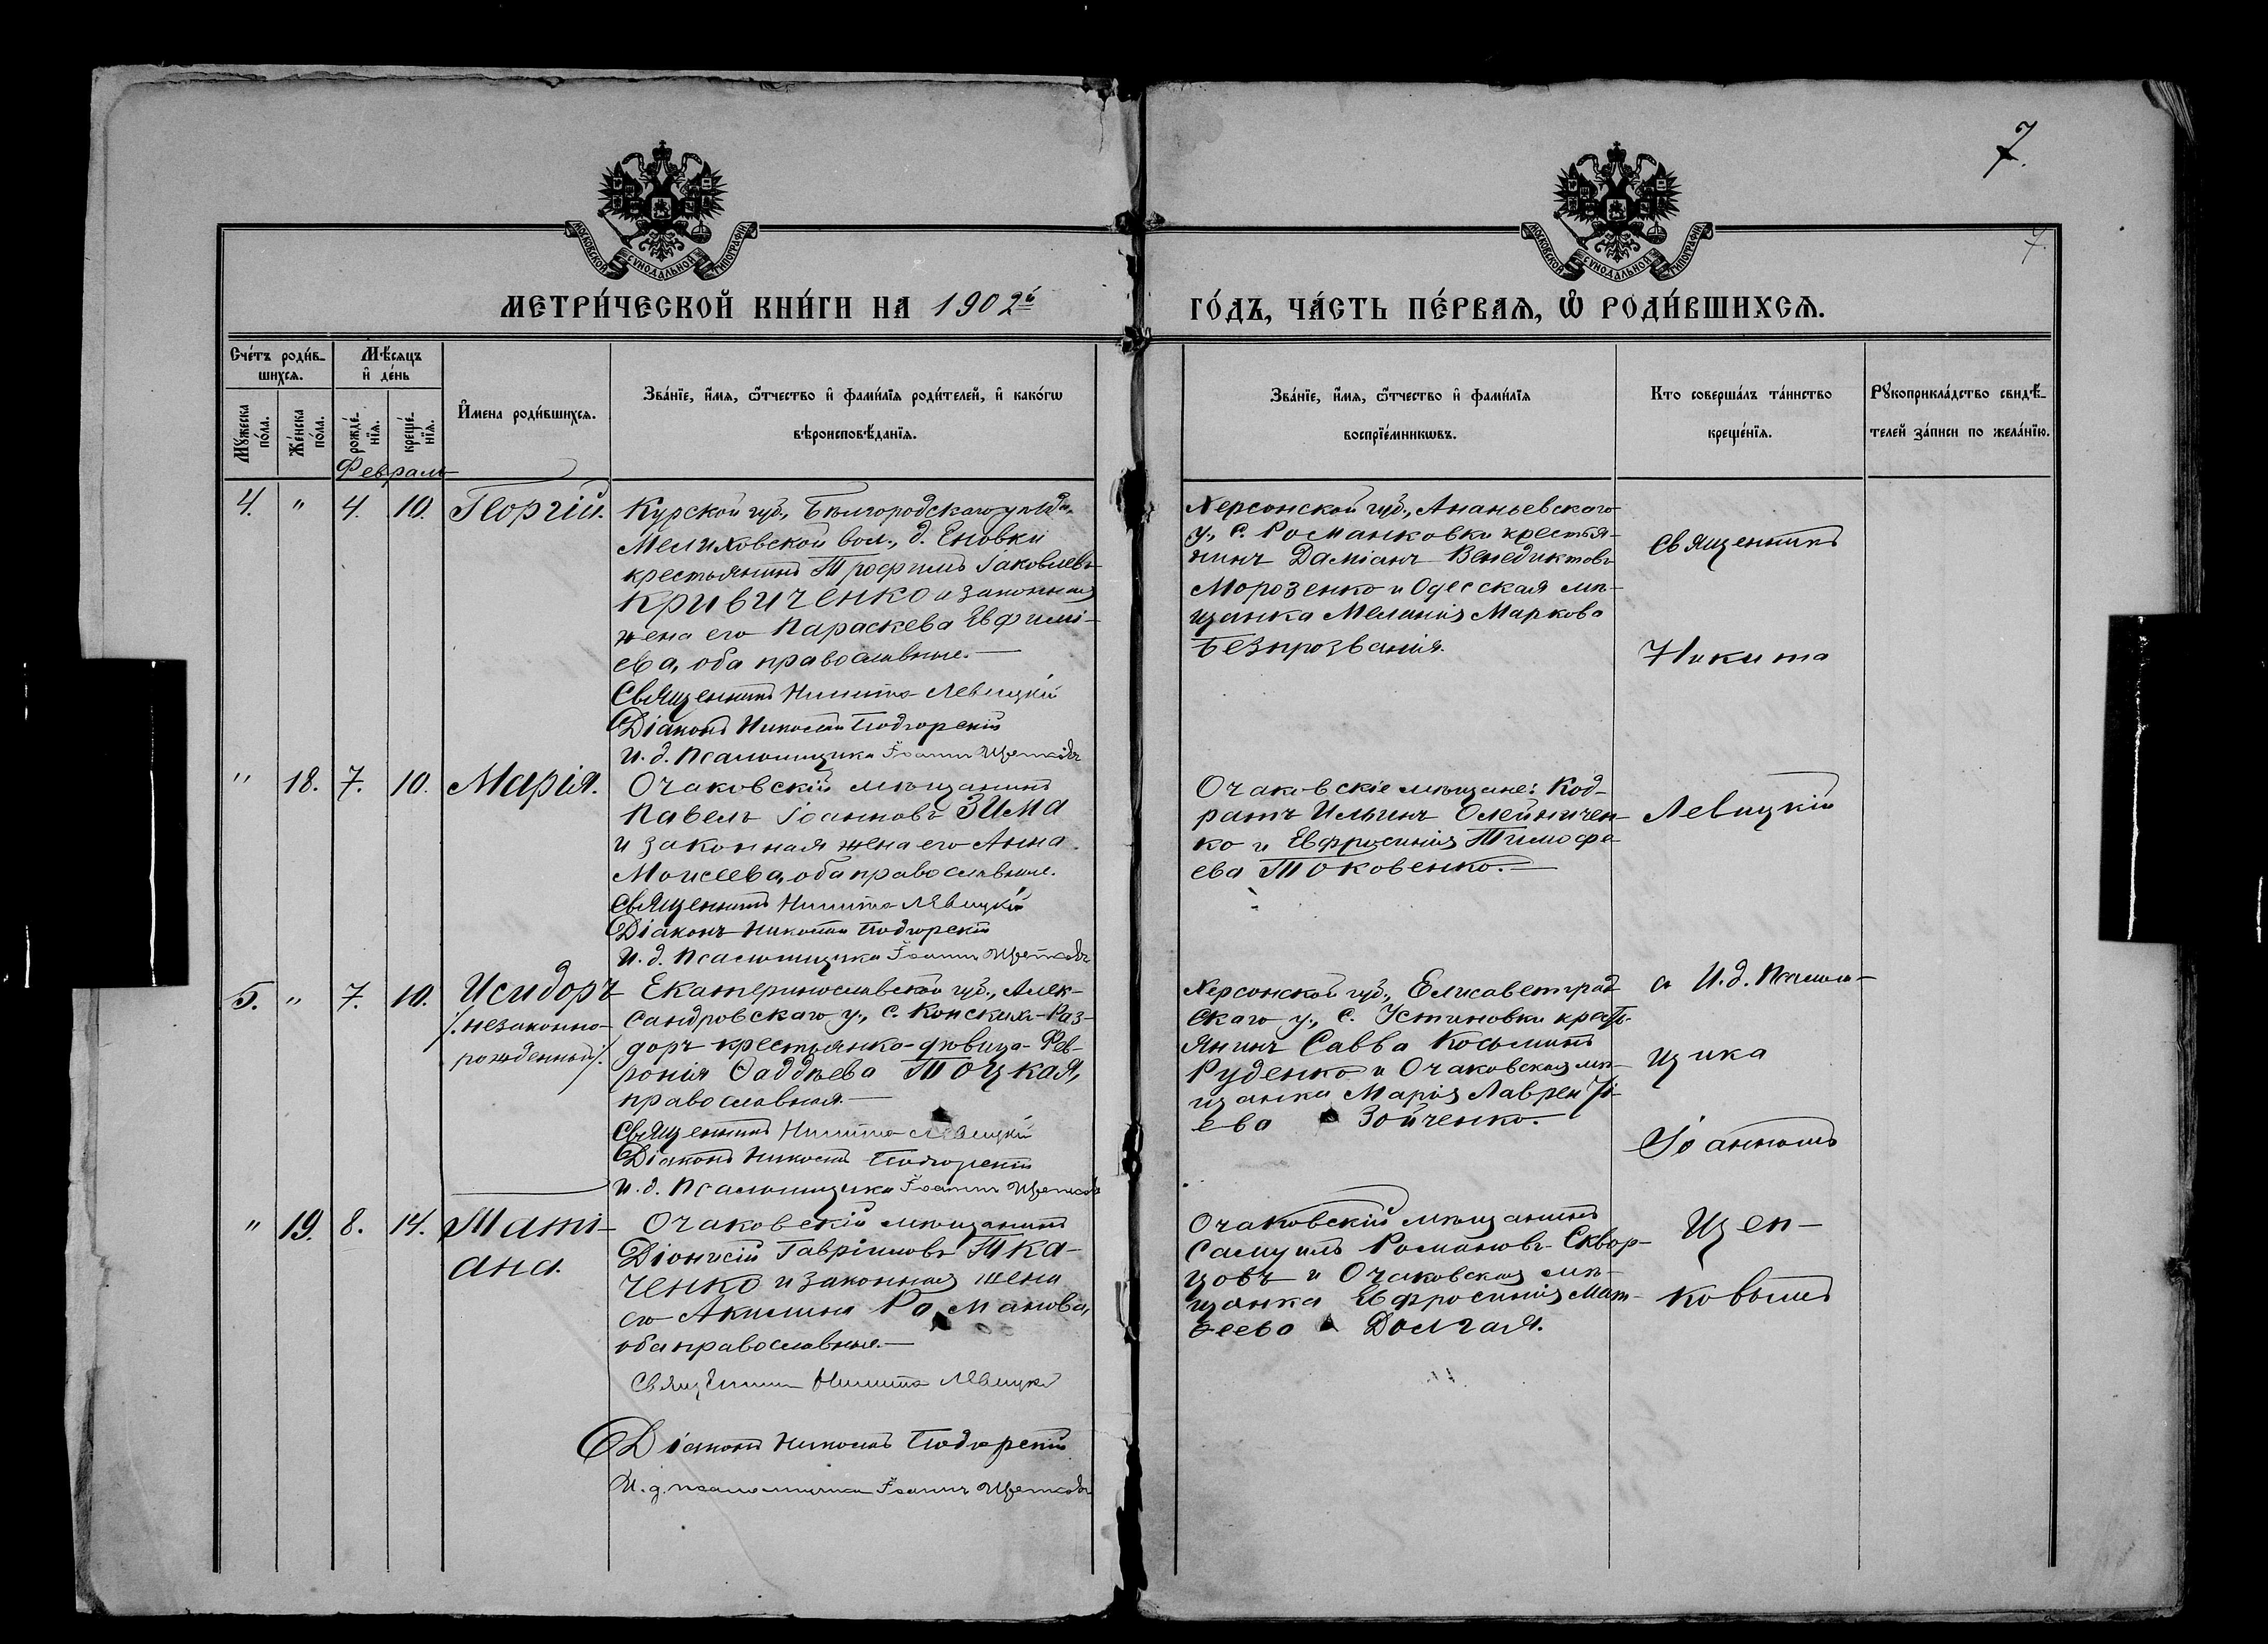 7.
7.
МОСКОВСКОЙ СѴНОДАЛЬНОЙ ТИПОГРАФІИ
МОСКОВСКОЙ СѴНОДАЛЬНОЙ ТИПОГРАФІИ
МЕТРИ́ЧЕСКОЙ КНИ́ГИ НА 1902й
ГО́ДЪ, ЧА́СТЬ ПЕ́РВАѦ, Ѡ҆ РОДИ́ВШИХСѦ.
Сче́тъ роди́в-
шихсѧ.
Мꙋжеска по́ла.
Же́нска по́ла.
Мѣ́сѧцъ
и҆ де́нь
рожде́-
нїѧ.
креще́-
нїѧ.
И҆мена роди́вшихсѧ.
Зва́нїе, и҆́мѧ, ѻ҆́тчество и҆ фами́лїѧ роди́телей, и҆ како́гѡ
вѣроисповѣ́данїѧ.
Зва́нїе, и҆́мѧ, ѻ҆́тчество и҆ фами́лїѧ
воспрїе́мникѡвъ.
Кто соверша́лъ та́инство
креще́нїѧ.
Рꙋкоприкла́дство свидѣ́-
телей за́писи по жела́нїю.
Февраль
4. " 4. 10. Георгій.
Курской губ., Бѣлгородскаго уѣзда,
Мелиховской вол., д. Еновки
крестьянинъ Трофимъ Іаковлевъ
Кривиченко и законная
жена его Параскева Евфимі-
ева, оба православные.
Священникъ Никита Левицкій
Діаконъ Николай Подгорскій
И. д. Псаломщика Іоаннъ Щетковъ
Херсонской губ., Ананьевскаго
у., с. Романковки крестья-
нинъ Даміанъ Венедиктовъ
Морозенко и Одесская мѣ-
щанка Меланія Маркова
Безпрозванія.
" 18. 7. 10. Марія.
Очаковскій мѣщанинъ
Павелъ Іоанновъ Зима
и законная жена его Анна
Моисеева, оба православные.
Священникъ Никита Левицкій
Діаконъ Николай Подгорскій
И. д. Псаломщика Іоаннъ
Очаковскіе мѣщане: Код-
ратъ Ильинъ Олейничен-
ко и Евфросинія Тимофе-
ева Токовенко.
5. " 7. 10. Исидоръ
/незаконно-
рожденный/.
Екатеринославской губ., Алек-
сандровскаго у., с. Конскихъ-Раз-
доръ крестьянка-дѣвица Фев-
ронія Ѳаддѣева Тоцкая,
православная.
Священникъ Никита Левицкій
Діаконъ Николай Подгорскій
И. д. Псаломщика Іоаннъ
Херсонской губ., Елисаветград
скаго у., с. Устиновки крест-
янинъ Савва Косьминъ
Руденко и Очаковская мѣ-
щанка Марія Лаврентi-
ева Зойченко.
" 19. 8. 14. Таті-
ана.
Очаковскій мѣщанинъ
Діонисій Гавріиловъ Тка-
ченко и законная жена
его Акилина Романова,
оба православные.
Священникъ Никита Левицкій
Діаконъ Николай Подгорскій
И. д. псаломщика Іоаннъ
Очаковскій мѣщанинъ
Самуилъ Романовъ Сквор-
цовъ и Очаковская мѣ-
щанка Евфросинія Мат-
ѳеева Долгая.
Священникъ
Никита
Левицкій
съ И. д. Псалом-
щика
Іоанномъ
Щет-
ковымъ